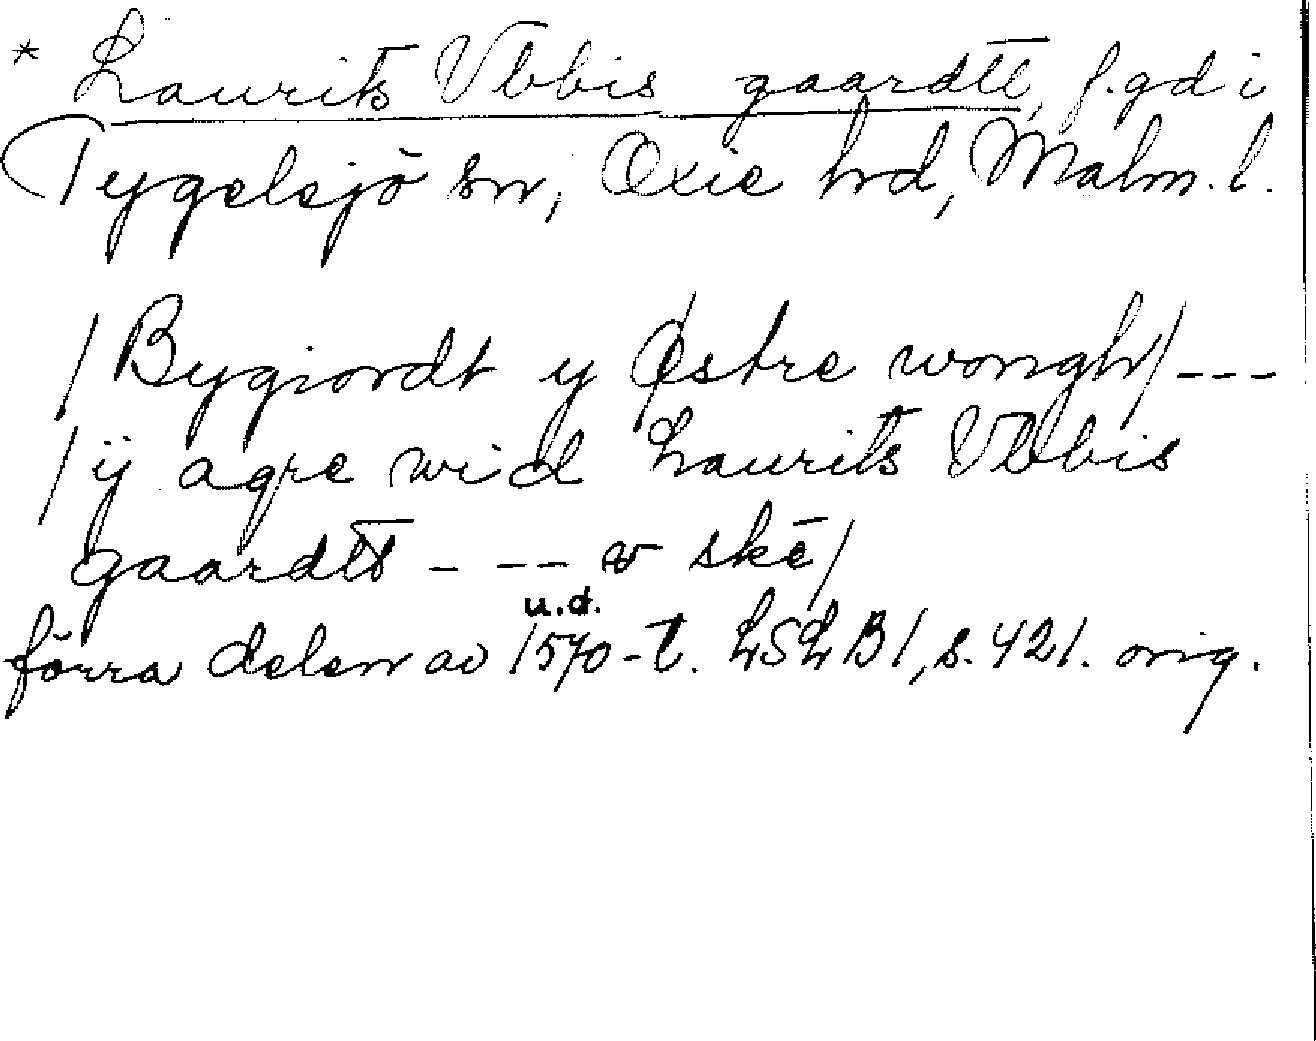 * Laurits Vbbis gaardtt, f.gd i
Tygelsjö sn, Oxie hrd, Malm.l.
/Bygiordt y Østre wongh/ ---
/ij agre wid Laurits Vbbis
gaardtt - --- v skē/
u.d.
förra delen av 1570-t. LSLB1, s.421. orig.